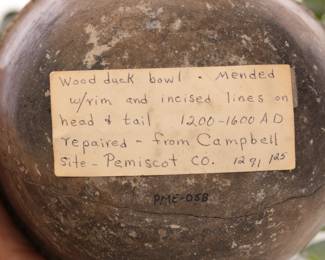 Wood duck bowl - Mended
w/rim and incised lines on
head & tail 1200-1600 AD
repaired - from Campbell
Site - Pemiscot CO. 1271 125
PME-05B